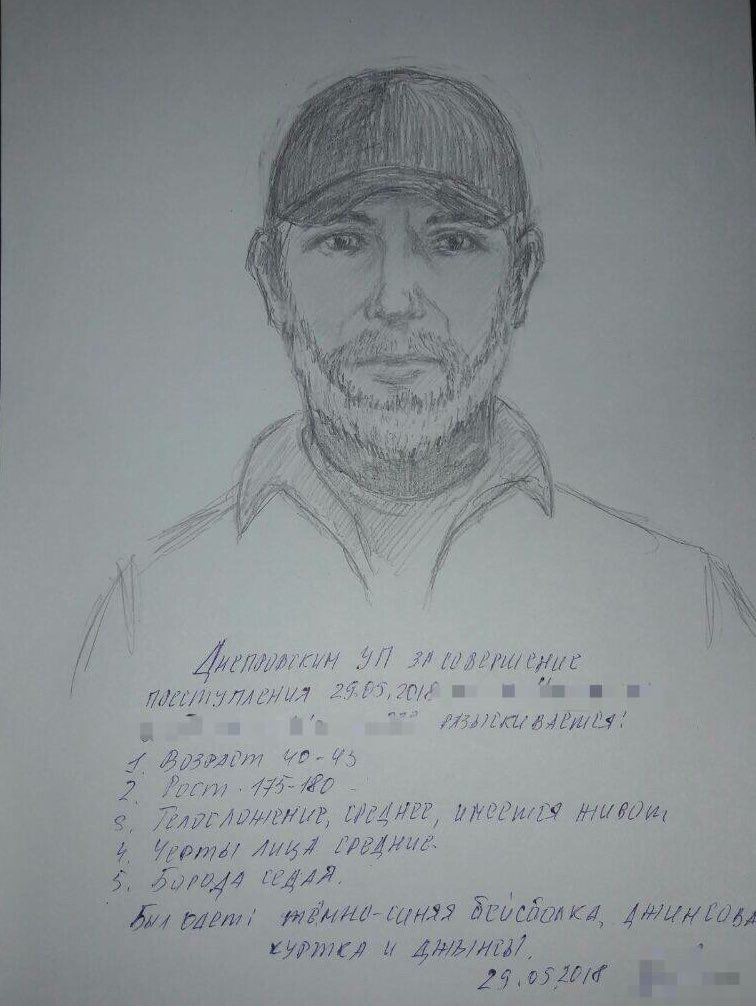 Днепровским УП за совершение
преступления 29.05.2018
разыскивается!
1. Возраст 40-45
2. Рост. 175-180
3. Телосложение, среднее, имеется живот
4. Черты лица средние.
5. Борода седая.
Был одет: тёмно-синяя бейсболка, джинсова
куртка и джынсы.
29.05.2018